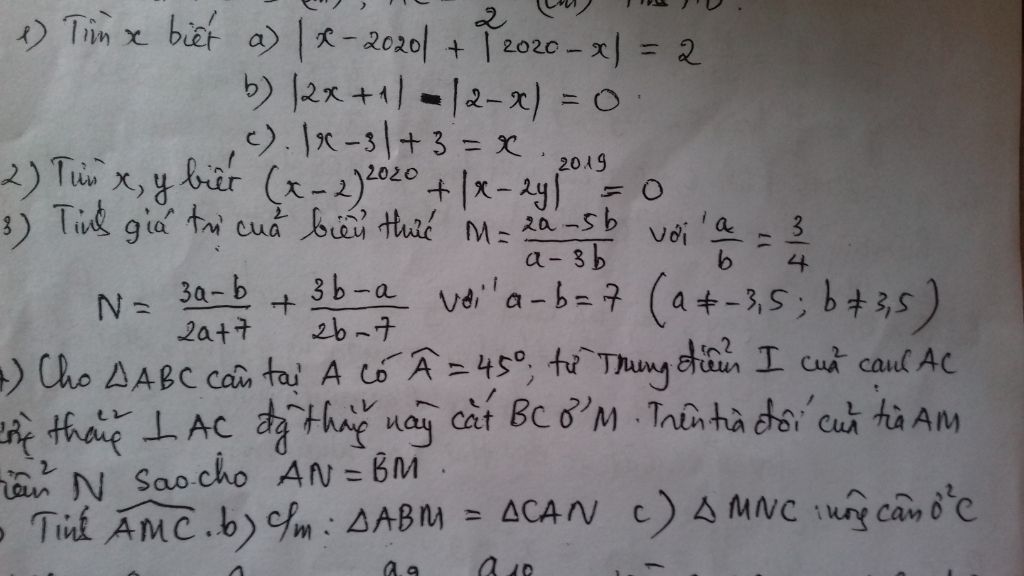 1) Tìm x biết a) |x - 2020| + |2020 - x| = 2
2
b) |2x + 1| - |2 - x| = 0
c). |x - 3| + 3 = x.
2) Tìm x, y biết (x - 2)^2020 + |x - 2y|^2019 = 0
3) Tính giá trị của biểu thức M = (2a - 5b)/(a - 3b) với a/b = 3/4
N = (3a - b)/(2a + 7) + (3b - a)/(2b - 7) với a - b = 7 (a ≠ -3,5; b ≠ 3,5)
) Cho ΔABC cân tại A có Â = 45°; từ Trung điểm I của cạnh AC
thẳng ⊥ AC đg thẳng này cắt BC ở M. Trên tia đối của tia AM
N sao cho AN = BM.
Tính AMC. b) c/m: ΔABM = ΔCAN c) ΔMNC vuông cân ở C
a9 a10